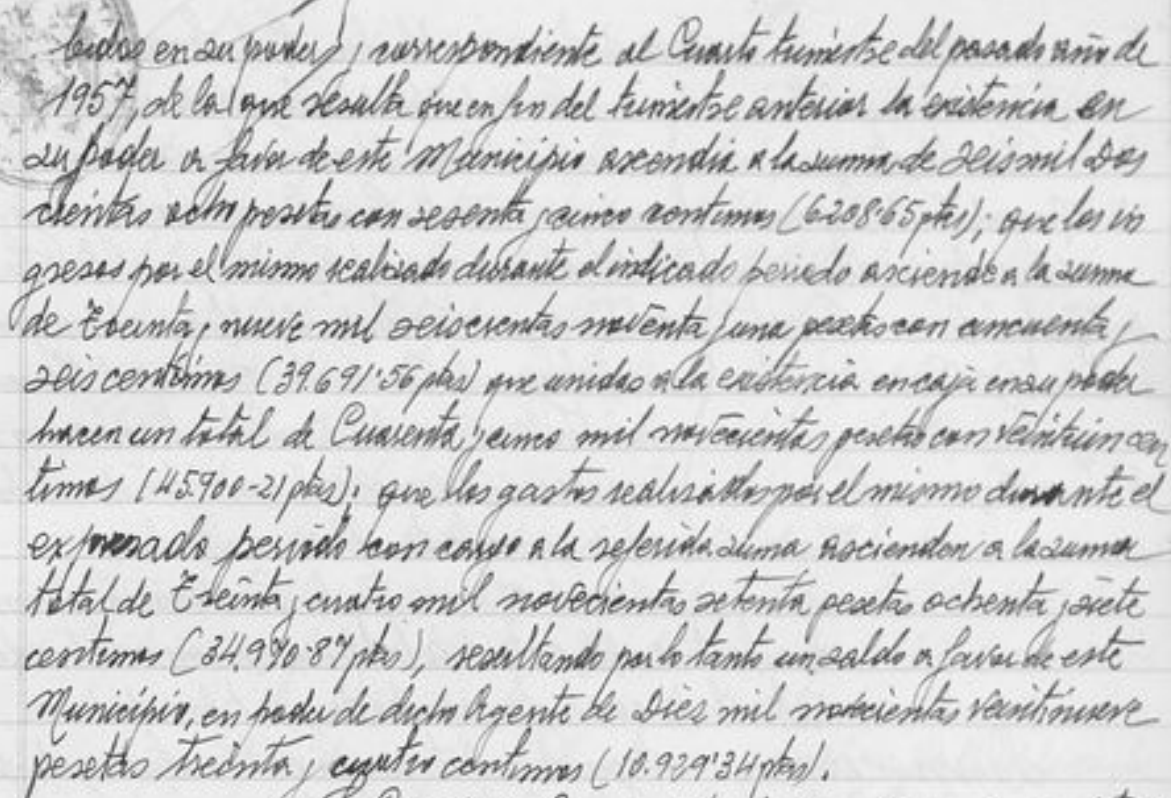 bidas en su poder, y correspondiente al Cuarto trimestre del pasado año de
1957, de la que resulta que en fin del trimestre anterior la existencia en
su poder a favor de este Municipio ascendia a la suma de Seis mil Dos
cientas ocho pesetas con sesenta y cinco centimos (6208'65 ptas); que los in
gresos por el mismo realizado durante el indicado periodo asciende a la suma
de Treinta y nueve mil seiscientas noventa y una pesetas con cincuenta y
seis centimos (39.691'56 ptas) que unidas a la existencia en caja en su poder
hacen un total de Cuarenta y cinco mil novecientas pesetas con veintiun cen
timos (45.900-21 ptas); que los gastos realizados por el mismo durante el
expresado periodo con cargo a la referida suma ascienden a la suma
total de Treinta y cuatro mil novecientas setenta pesetas ochenta y siete
centimos (34.970'87 ptas), resultando por lo tanto un saldo a favor de este
Municipio, en poder de dicho Agente de Diez mil novecientas veintinueve
pesetas treinta y cuatro centimos (10.929'34 ptas).